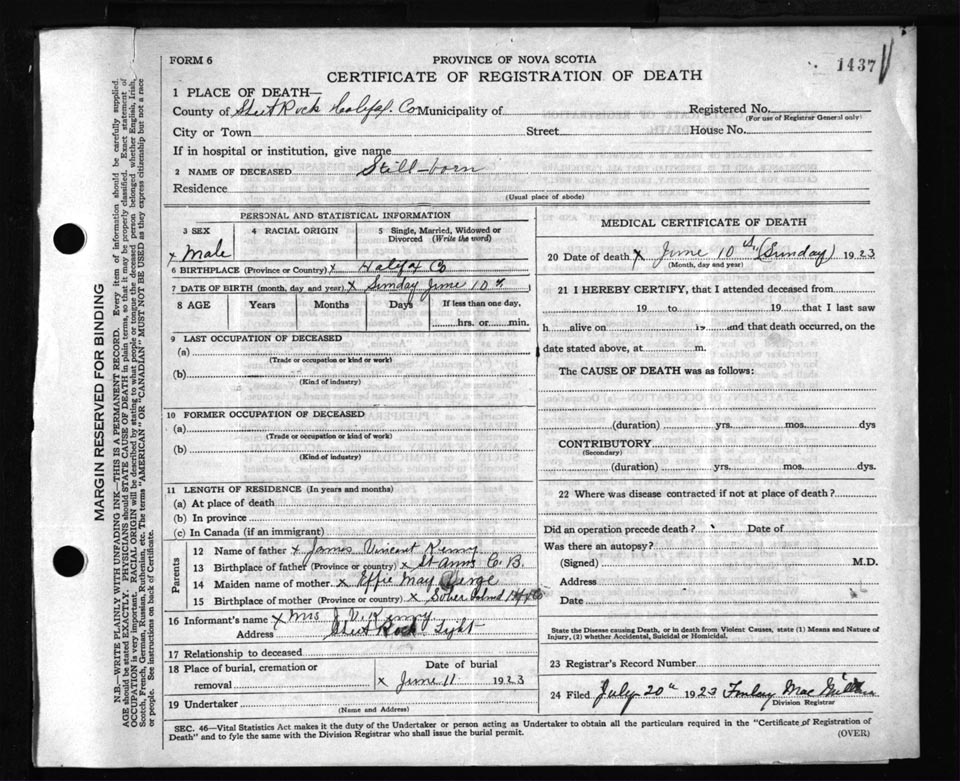 FORM 6
PROVINCE OF NOVA SCOTIA
1437
CERTIFICATE OF REGISTRATION OF DEATH
1 PLACE OF DEATH—
County of Sheet Rock Halifax Co Municipality of
Registered No.
(For use of Registrar General only)
City or Town Street House No.
If in hospital or institution, give name
2 NAME OF DECEASED Still-born
Residence
(Usual place of abode)
PERSONAL AND STATISTICAL INFORMATION
3 SEX
x Male
4 RACIAL ORIGIN
5 Single, Married, Widowed or Divorced (Write the word)
6 BIRTHPLACE (Province or Country) x Halifax Co
7 DATE OF BIRTH (month, day and year) x Sunday June 10th
8 AGE Years Months Days If less than one day,
hrs. or min.
9 LAST OCCUPATION OF DECEASED
(a)
(Trade or occupation or kind or work)
(b)
(Kind of industry)
10 FORMER OCCUPATION OF DECEASED
(a)
(Trade or occupation or kind of work)
(b)
(Kind of industry)
11 LENGTH OF RESIDENCE (In years and months)
(a) At place of death
(b) In province
(c) In Canada (if an immigrant)
Parents
12 Name of father x James Vincent Kenny
13 Birthplace of father (Province or country) x St Anns C. B.
14 Maiden name of mother x Effie May
15 Birthplace of mother (Province or country) x Sober Island Hfx Co
16 Informant's name x Mrs J V Kenny
Address Sheet Rock Light
17 Relationship to deceased
18 Place of burial, cremation or removal
Date of burial
x June 11 1923
19 Undertaker
(Name and Address)
MEDICAL CERTIFICATE OF DEATH
20 Date of death x June 10th (Sunday) 1923
(Month, day and year)
21 I HEREBY CERTIFY, that I attended deceased from
19 to 19 that I last saw
h alive on 19 and that death occurred, on the
date stated above, at m.
The CAUSE OF DEATH was as follows:
(duration) yrs. mos. dys
CONTRIBUTORY
(Secondary)
(duration) yrs. mos. dys.
22 Where was disease contracted if not at place of death?
Did an operation precede death? Date of
Was there an autopsy?
(Signed) M.D.
Address
Date
State the Disease causing Death, or in death from Violent Causes, state (1) Means and Nature of
Injury, (2) whether Accidental, Suicidal or Homicidal.
23 Registrar's Record Number
24 Filed July 20th 1923 Finlay Mac Millan
Division Registrar
SEC. 46—Vital Statistics Act makes it the duty of the Undertaker or person acting as Undertaker to obtain all the particulars required in the "Certificate of Registration of
Death" and to fyle the same with the Division Registrar who shall issue the burial permit.
(OVER)
MARGIN RESERVED FOR BINDING
N.B.—WRITE PLAINLY WITH UNFADING INK—THIS IS A PERMANENT RECORD. Every item of information should be carefully supplied.
AGE should be stated EXACTLY. PHYSICIANS should STATE CAUSE OF DEATH in plain terms, so that it may be properly classified. Exact statement of
OCCUPATION is very important. RACIAL ORIGIN will be described by stating to what people or tongue the deceased person belonged whether English, Irish,
Scotch, French, German, Russian, Ruthenian, etc. The terms "AMERICAN" OR "CANADIAN" MUST NOT BE USED as they express citizenship but not a race
or people. See instructions on back of Certificate.